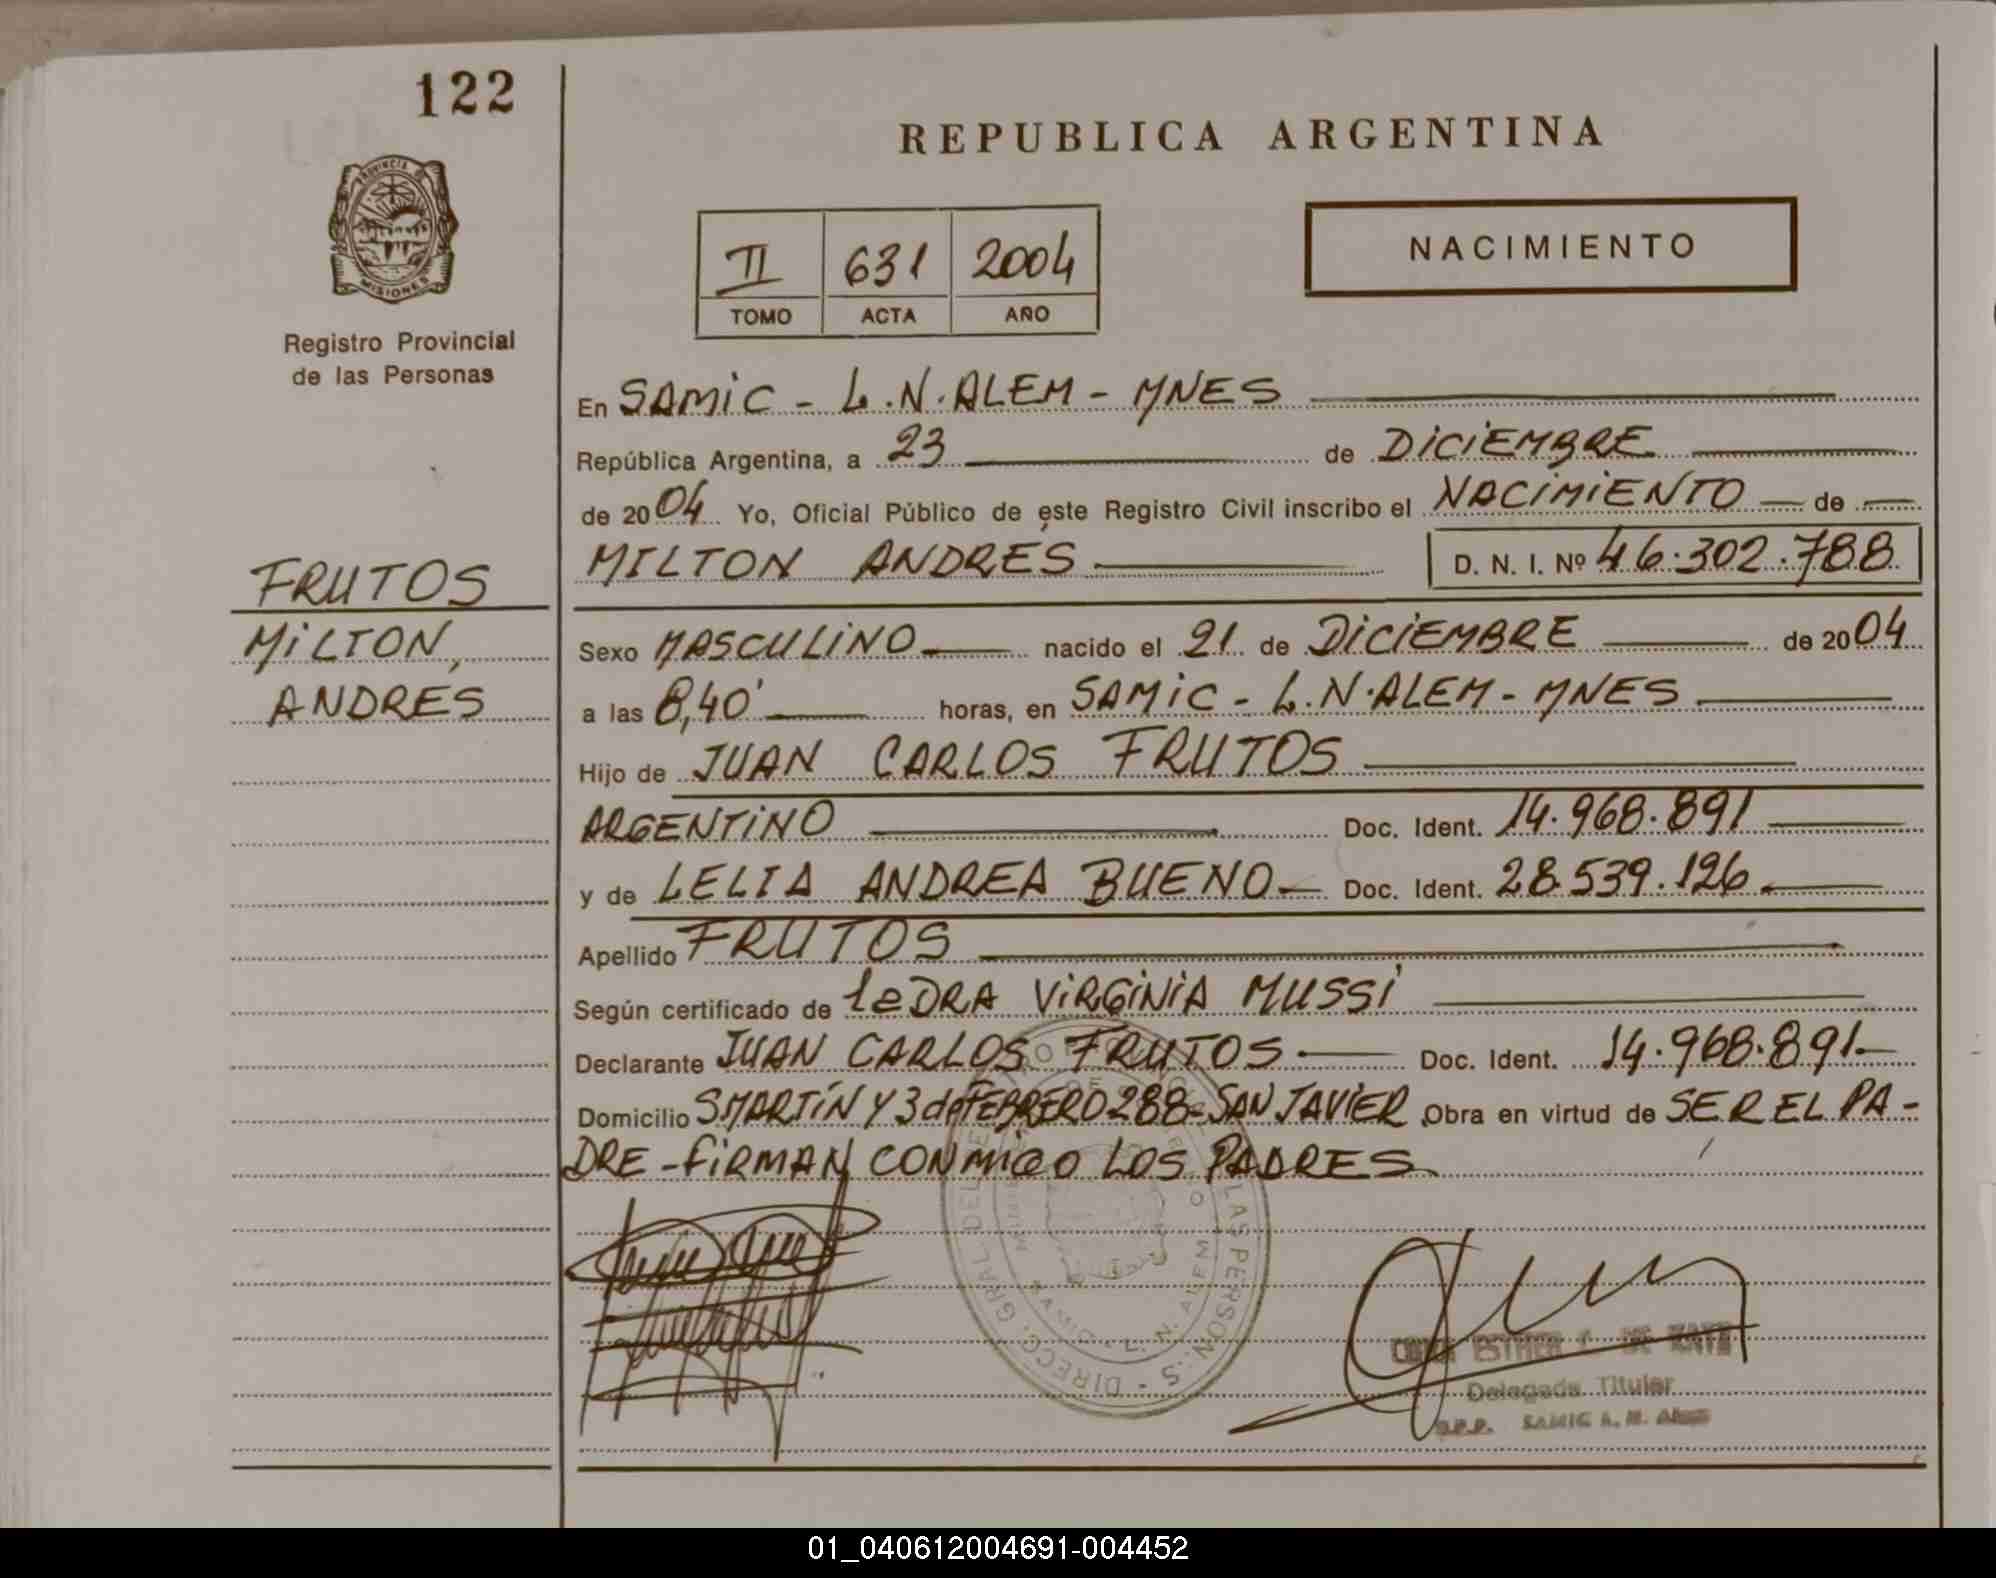 122
REPUBLICA ARGENTINA
PROVINCIA DE
MISIONES
Registro Provincial
de las Personas
II 631 2004
TOMO ACTA AÑO
NACIMIENTO
En SAMIC - L.N.ALEM - MNES
República Argentina, a 23 de DICIEMBRE
de 2004 Yo, Oficial Público de este Registro Civil inscribo el NACIMIENTO de
MILTON ANDRÉS D. N. I. Nº 46.302.788
FRUTOS
MILTON,
ANDRES
Sexo MASCULINO nacido el 21 de DICIEMBRE de 2004
a las 8,40' horas, en SAMIC - L.N.ALEM - MNES
Hijo de JUAN CARLOS FRUTOS
ARGENTINO Doc. Ident. 14.968.891
y de LELIA ANDREA BUENO Doc. Ident. 28.539.126
Apellido FRUTOS
Según certificado de la DRA VIRGINIA MUSSI
Declarante JUAN CARLOS FRUTOS Doc. Ident. 14.968.891
Domicilio S MARTÍN Y 3 de FEBRERO 288 - SAN JAVIER Obra en virtud de SER EL PA-
DRE - FIRMAN CONMIGO LOS PADRES
ESTHER C. DE
Delegada Titular
01_040612004691-004452